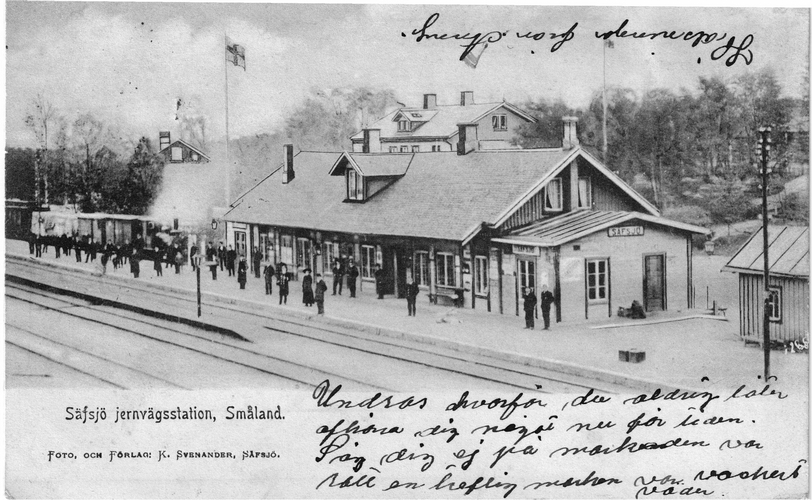 SÄFSJÖ
Säfsjö jernvägsstation, Småland.
FOTO, OCH FÖRLAG: K. SVENANDER, SÄFSJÖ.
Undras hvorför du aldrig låter
afhöra dig något nu för tiden.
Såg dig ej på marknaden var
rätt en treflig marken var vackert
väder.